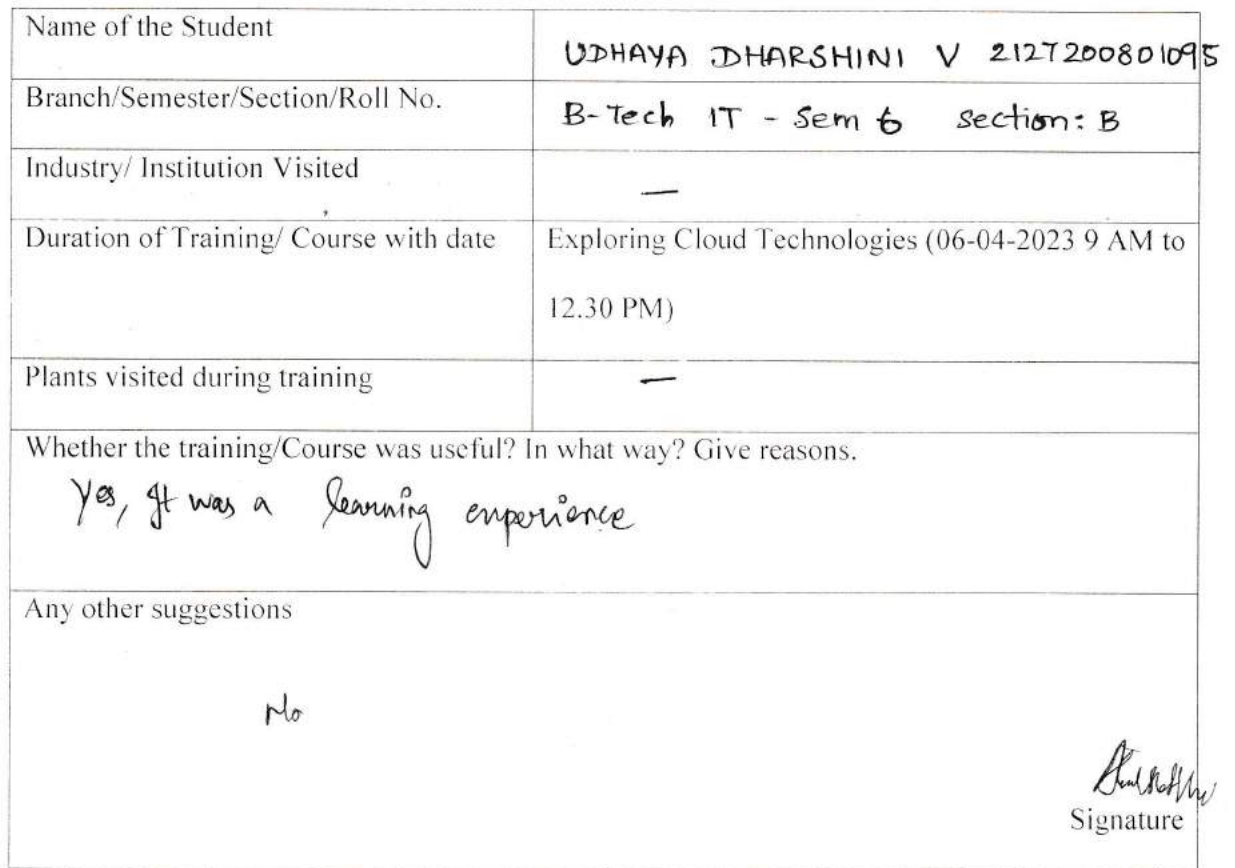 Name of the Student
UDHAYA DHARSHINI V 2127200801095
Branch/Semester/Section/Roll No.
B-Tech IT - Sem 6 section: B
Industry/ Institution Visited
—
Duration of Training/ Course with date
Exploring Cloud Technologies (06-04-2023 9 AM to
12.30 PM)
Plants visited during training
—
Whether the training/Course was useful? In what way? Give reasons.
Yes, It was a learning experience
Any other suggestions
No
Signature